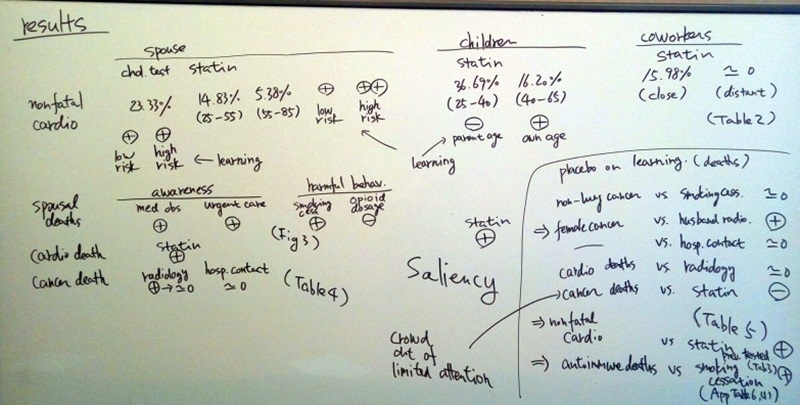 results
spouse
chol.test statin
nonfatal cardio
23.33% 14.83% 5.38% ⊕ ⊕⊕
(25-55) (55-85) low risk high risk
⊕ ⊕
low risk high risk ← learning
children
statin
36.69% 16.20%
(25-40) (40-65)
⊖ ⊕
parent age own age
learning
coworkers
statin
15.98% ≃ 0
(close) (distant)
(Table 2)
awareness harmful behav.
spousal deaths
med obs urgent care smoking cess opioid dosage
⊕ ⊕ ⊕ ⊖
(Fig 3)
statin
⊕
cardio death
statin
⊕
cancer death
radiology hosp. contact (Table 4)
⊕→≃0 ≃0
Saliency
Crowd
out of
limited attention
placebo on learning. (deaths)
non-lung cancer vs smoking cess. ≃ 0
⇒ female cancer vs. husband radio. ⊕
— vs. hosp. contact ≃ 0
cardio deaths vs. radiology ≃ 0
cancer deaths vs. statin ⊖
(Table 5)
⇒ nonfatal cardio vs statin ⊕
prev. tested (Tab 3)
⇒ autoimmune deaths vs smoking cessation ⊕
(App Table 6,